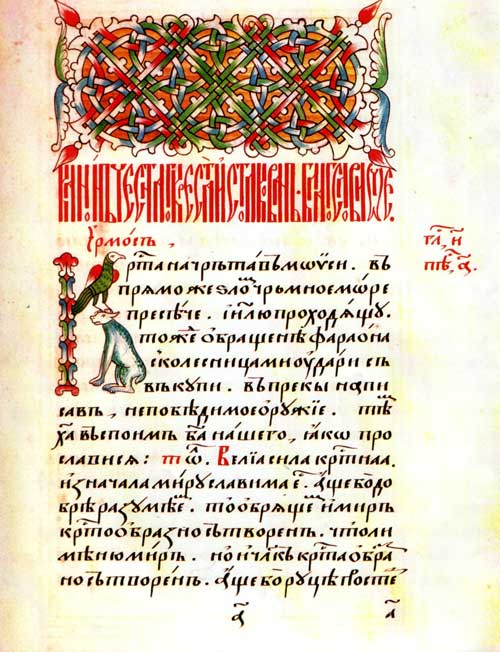 І҆рмосъ ,
гла , и҃
пѣⷭ , а҃
Крⷭ҇та начрьтавъ мѡѷси . въ
прѧмо жезлоⷨ чромное море
пресѣче . і҆и҃лю проходѧщꙋ
тоже ѡбращь не фараѡна
с колесницами ѹдари съ
въкупи . въпрекы напи
савъ , непобѣдимое ѻружїе . тѣⷨ
х҃а въспоимъ б҃а нашего , ꙗкѡ про
слависѧ : Велїа сила крⷭ҇тнаа
изначала мирꙋ славима еⷭ҇ . аще бо до
брѣ разꙋмѣе . то ѡбрѧще и миръ
крⷭ҇то ѡбразно сътворенъ . что ли
мѣню миръ . но и чл҃къ крⷭ҇та ѡбра
но сътворенъ . аще бо рꙋцѣ простє
а҃
а